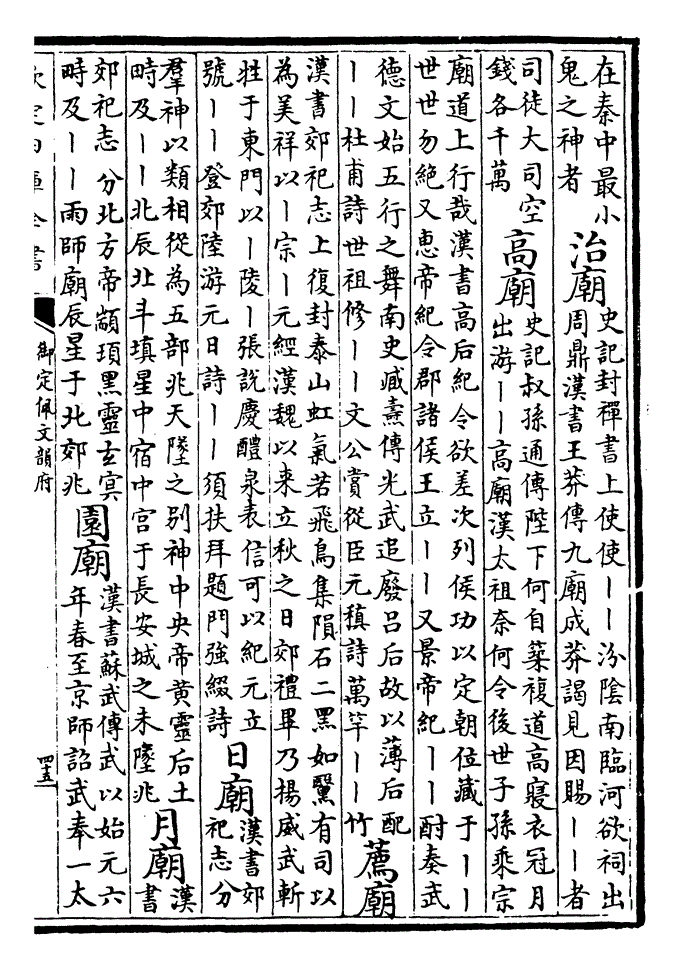 在秦中最小
鬼之神者
治廟
史記封禪書上使使丨丨汾陰南臨河欲祠出
周鼎漢書王莽傳九廟成莽謁見因賜丨丨者
司徒大司空
錢各千萬
高廟
史記叔孫通傳陛下何自築複道高寢衣冠月
出游丨丨高廟漢太祖奈何令後世子孫乘宗
廟道上行哉漢書高后紀令欲差次列侯功以定朝位藏于丨丨
世世勿絕又惠帝紀令郡諸侯王立丨丨又景帝紀丨丨酎奏武
德文始五行之舞南史臧燾傳光武追廢呂后故以薄后配
丨丨杜甫詩世祖修丨丨文公賞從臣元稹詩萬竿丨丨竹
薦廟
漢書郊祀志上復封泰山虹氣若飛鳥集隕石二黑如黳有司以
為美祥以丨宗丨元經漢魏以来立秋之日郊禮畢乃揚威武斬
牲于東門以丨陵丨張說慶醴泉表信可以紀元立
號丨丨登郊陸游元日詩丨丨須扶拜題門強綴詩
日廟
漢書郊
祀志分
羣神以類相從為五部兆天墬之别神中央帝黄靈后土
畤及丨丨北辰北斗填星中宿中宫于長安城之未墬兆
月廟
漢
書
郊祀志分北方帝顓頊黑靈玄冥
畤及丨丨雨師廟辰星于北郊兆
園廟
漢書蘇武傳武以始元六
年春至京師詔武奉一太
欽定四庫全書
御定佩文韻府
四十五